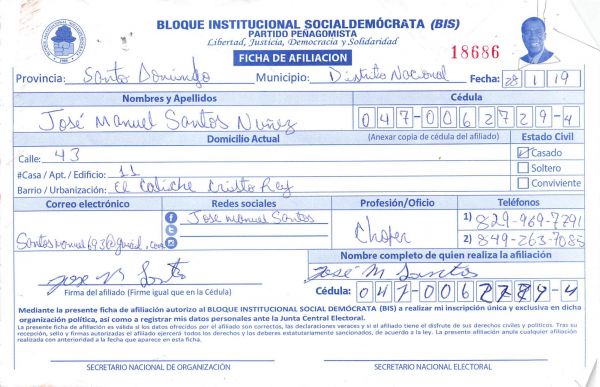 BLOQUE INSTITUCIONAL SOCIALDEMÓCRATA (BIS)
PARTIDO PEÑAGOMISTA
Libertad, Justicia, Democracia y Solidaridad
FICHA DE AFILIACION
18686
Provincia: Santo Domingo Municipio: Distrito Nacional Fecha: 28 1 19
Nombres y Apellidos Cédula
José Manuel Santos Nuñez 047-0062729-4
Domicilio Actual (Anexar copia de cédula del afiliado) Estado Civil
Calle: 43 Casado
#Casa / Apt. / Edificio: 11 Soltero
Barrio / Urbanización: El Caliche Cristo Rey Conviviente
Correo electrónico Redes sociales Profesión/Oficio Teléfonos
Jose manuel Santos 1) 829-969-7791
Santosmanuel693@gmail.com Chofer 2) 849-263-7085
Nombre completo de quien realiza la afiliación
Jose M Santos José M Santos
Firma del afiliado (Firme igual que en la Cédula) Cédula: 047-006 -4
Mediante la presente ficha de afiliación autorizo al BLOQUE INSTITUCIONAL SOCIAL DEMÓCRATA (BIS) a realizar mi inscripción única y exclusiva en dicha
organización política, así como a registrar mis datos personales ante la Junta Central Electoral.
La presente ficha de afiliación es válida si los datos ofrecidos por el afiliado son correctos, las declaraciones veraces y si el afiliado tiene el disfrute de sus derechos civiles y políticos. Tras su
recepción, sello y firmas autorizadas el afiliado ejercerá todos los derechos y los deberes estatutariamente sancionados, de acuerdo a la ley. La presente afiliación anula cualquier afiliación
realizada con anterioridad a la fecha que aparece en esta ficha.
SECRETARIO NACIONAL DE ORGANIZACIÓN SECRETARIO NACIONAL ELECTORAL